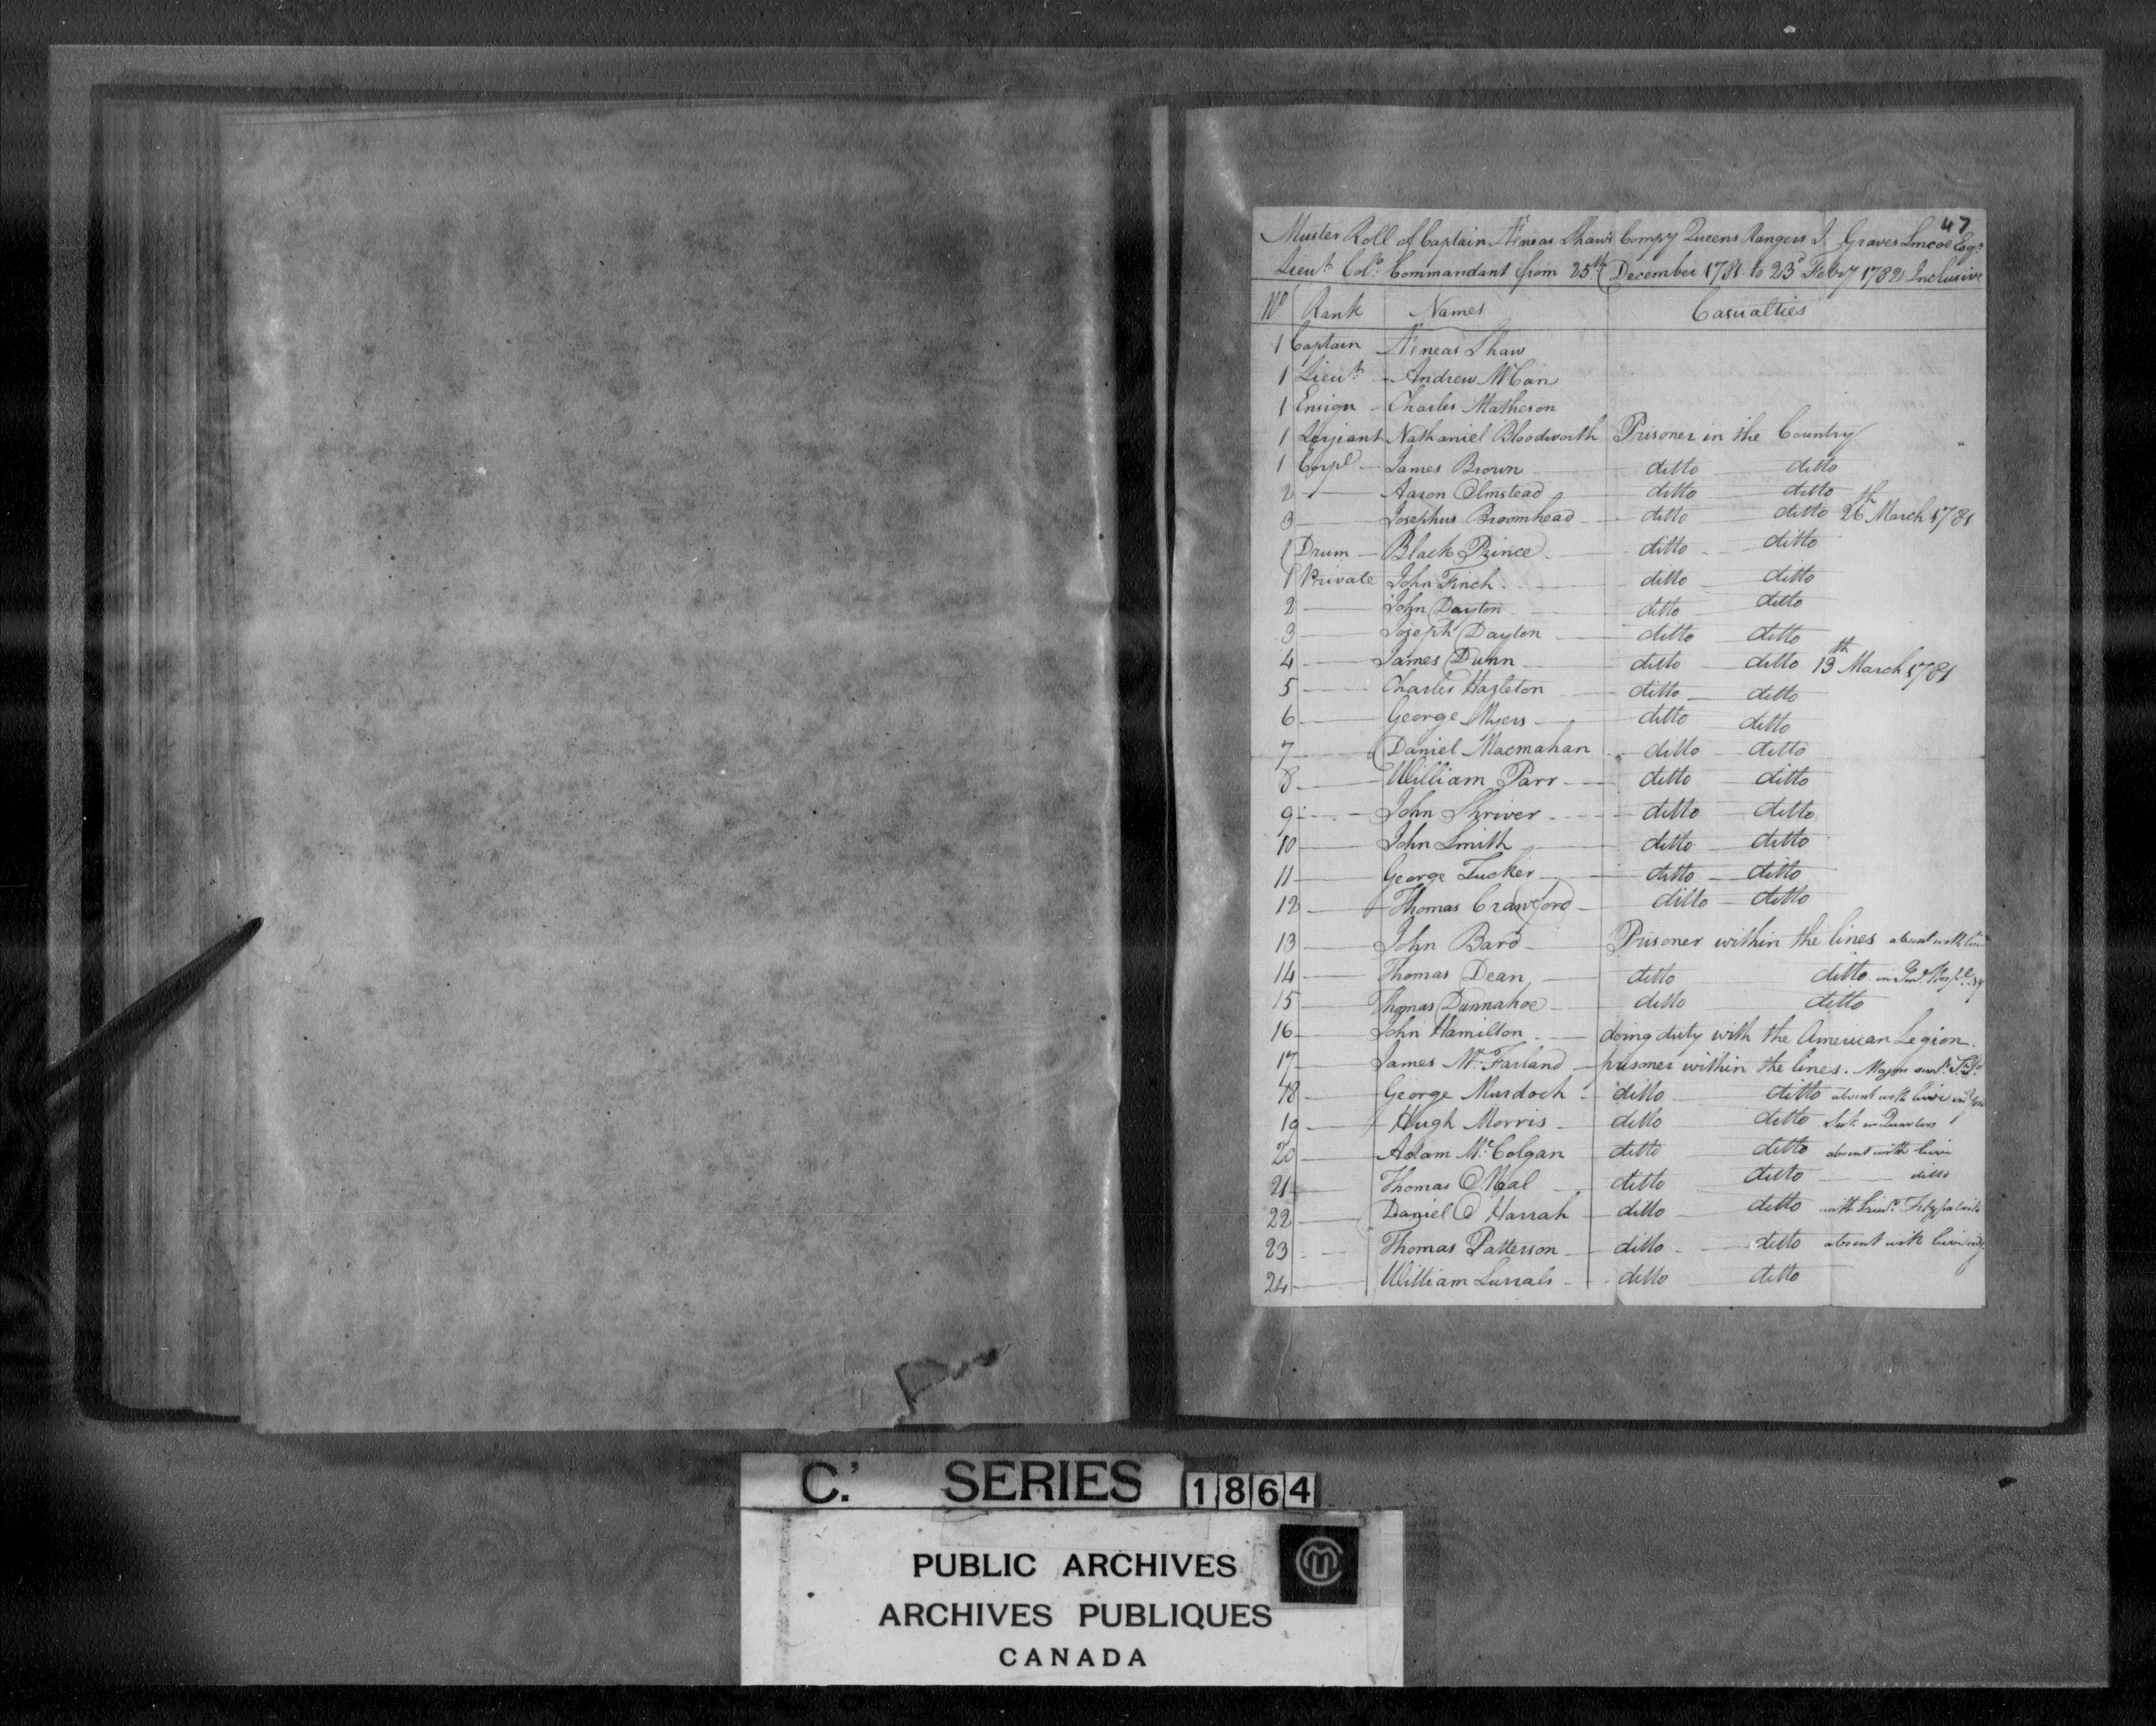 47
Muster Roll of Captain Æneas Shaw's Compy Queens Rangers J. Graves Simcoe Esqr.
Lieut. Col.o Commandant from 25th December 1781 to 23d Febry 1782 Inclusive
No Rank Names Casualties
1 Captain Æneas Shaw
1 Lieut. Andrew McCan
1 Ensign Charles Matheson
1 Serjeant Nathaniel Bloodworth Prisoner in the Country
1 Corpl James Brown ditto ditto
2 Aaron Olmstead ditto ditto
3 Josephus Broomhead ditto ditto 26th March 1781
1 Drum Black Prince ditto ditto
1 Private John Finch ditto ditto
2 John Dayton ditto ditto
3 Joseph Dayton ditto ditto
4 James Dunn ditto ditto 13th March 1781
5 Charles Hazleton ditto ditto
6 George Myers ditto ditto
7 Daniel Macmahan ditto ditto
8 William Parr ditto ditto
9 John Shriver ditto ditto
10 John Smith ditto ditto
11 George Tucker ditto ditto
12 Thomas Crawford ditto ditto
13 John Bard Prisoner within the lines absent with
14 Thomas Dean ditto ditto in
15 Thomas Dunnahoe ditto ditto
16 John Hamilton doing duty with the American Legion.
17 James McFarland prisoner within the lines.
18 George Murdoch ditto ditto absent with
19 Hugh Morris ditto ditto in Quarters
20 Adam McColgan ditto ditto absent with
21 Thomas ONeal ditto ditto ditto
22 Daniel O Harrah ditto ditto with
23 Thomas Patterson ditto ditto absent with
24 William ditto ditto
C.' SERIES 1864
PUBLIC ARCHIVES
ARCHIVES PUBLIQUES
CANADA